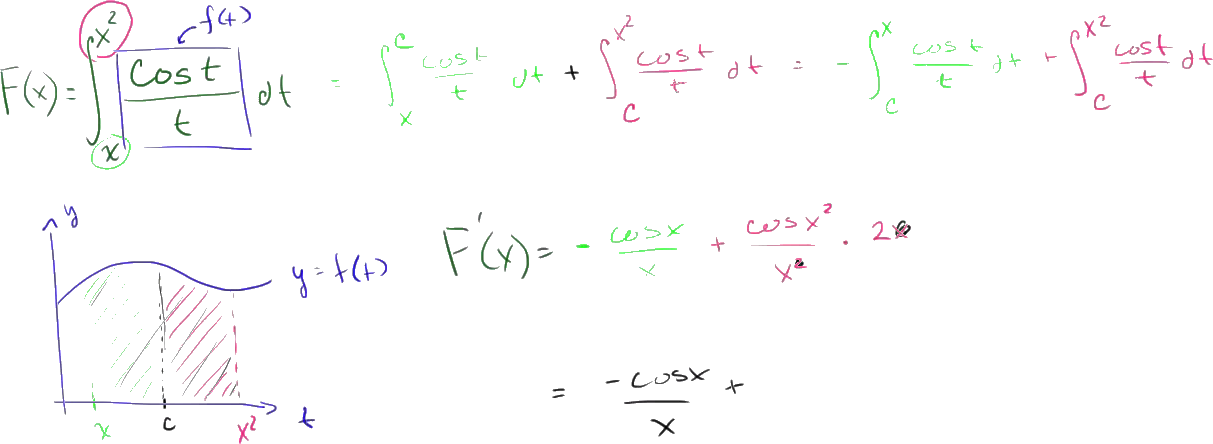 f(t)
F(x) = ∫_x^{x²} cos t / t dt = ∫_x^c cos t / t dt + ∫_c^{x²} cos t / t dt = - ∫_c^x cos t / t dt + ∫_c^{x²} cos t / t dt
y
y = f(t)
x c x² t
F'(x) = - cos x / x + cos x² / x² · 2x
= -cos x / x +